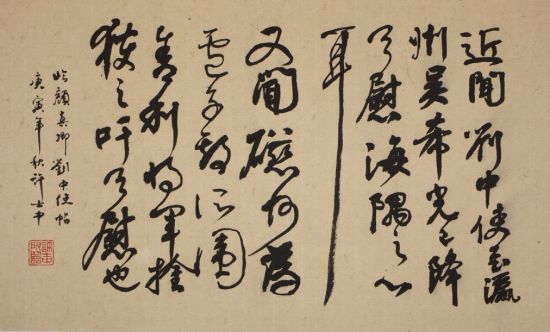 近聞劉中使至瀛
州吳希光已降
足慰海隅之心
耳
又聞磁州為
盧子期所圍
舍利將軍擒
獲之吁足慰也
臨顏真卿劉中使帖
庚寅年秋許士中